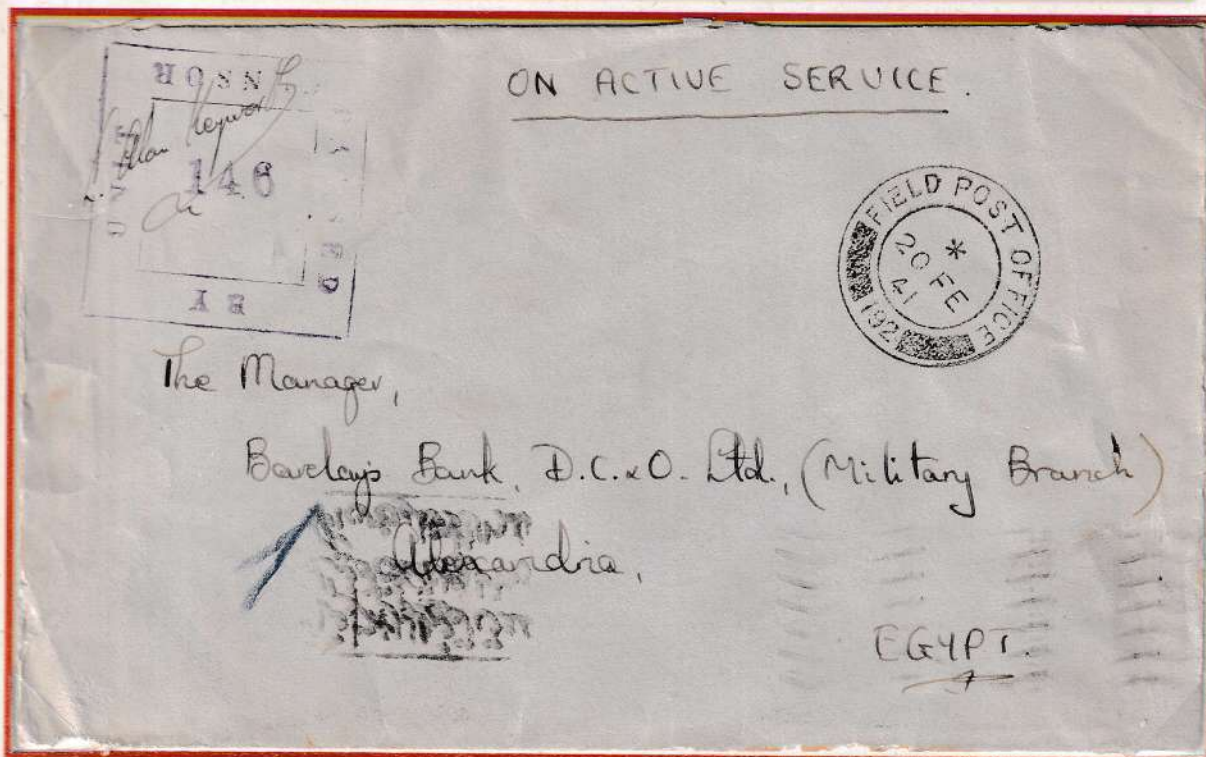 ON ACTIVE SERVICE.
146
BY
FIELD POST OFFICE
192
*
20 FE
41
The Manager,
Barclays Bank, D.C.&O. Ltd., (Military Branch)
Alexandria,
EGYPT.